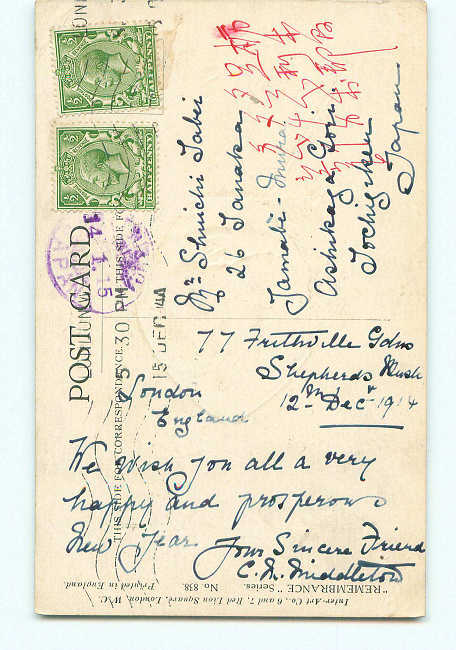 POST CARD
THIS SIDE FOR CORRESPONDENCE.
THIS SIDE FOR
HALFPENNY
HALFPENNY
5 30 PM
15 DEC 14
14.1.15
LONDON
Mr Shuichi Sabi
26 Tanaka
Yamabe-mura
Ashikaga Gori
Tochigi Ken
Japan
77 Frithville Gdns
Shepherds Bush
12th Decr 1914
London
England
We wish you all a very
happy and prosperous
New Year.
Your Sincere Friend
C. N. Middleton
"REMEMBRANCE" Series. No 838.
Inter-Art Co., 6 and 7, Red Lion Square, London, W.C.
Printed in England.